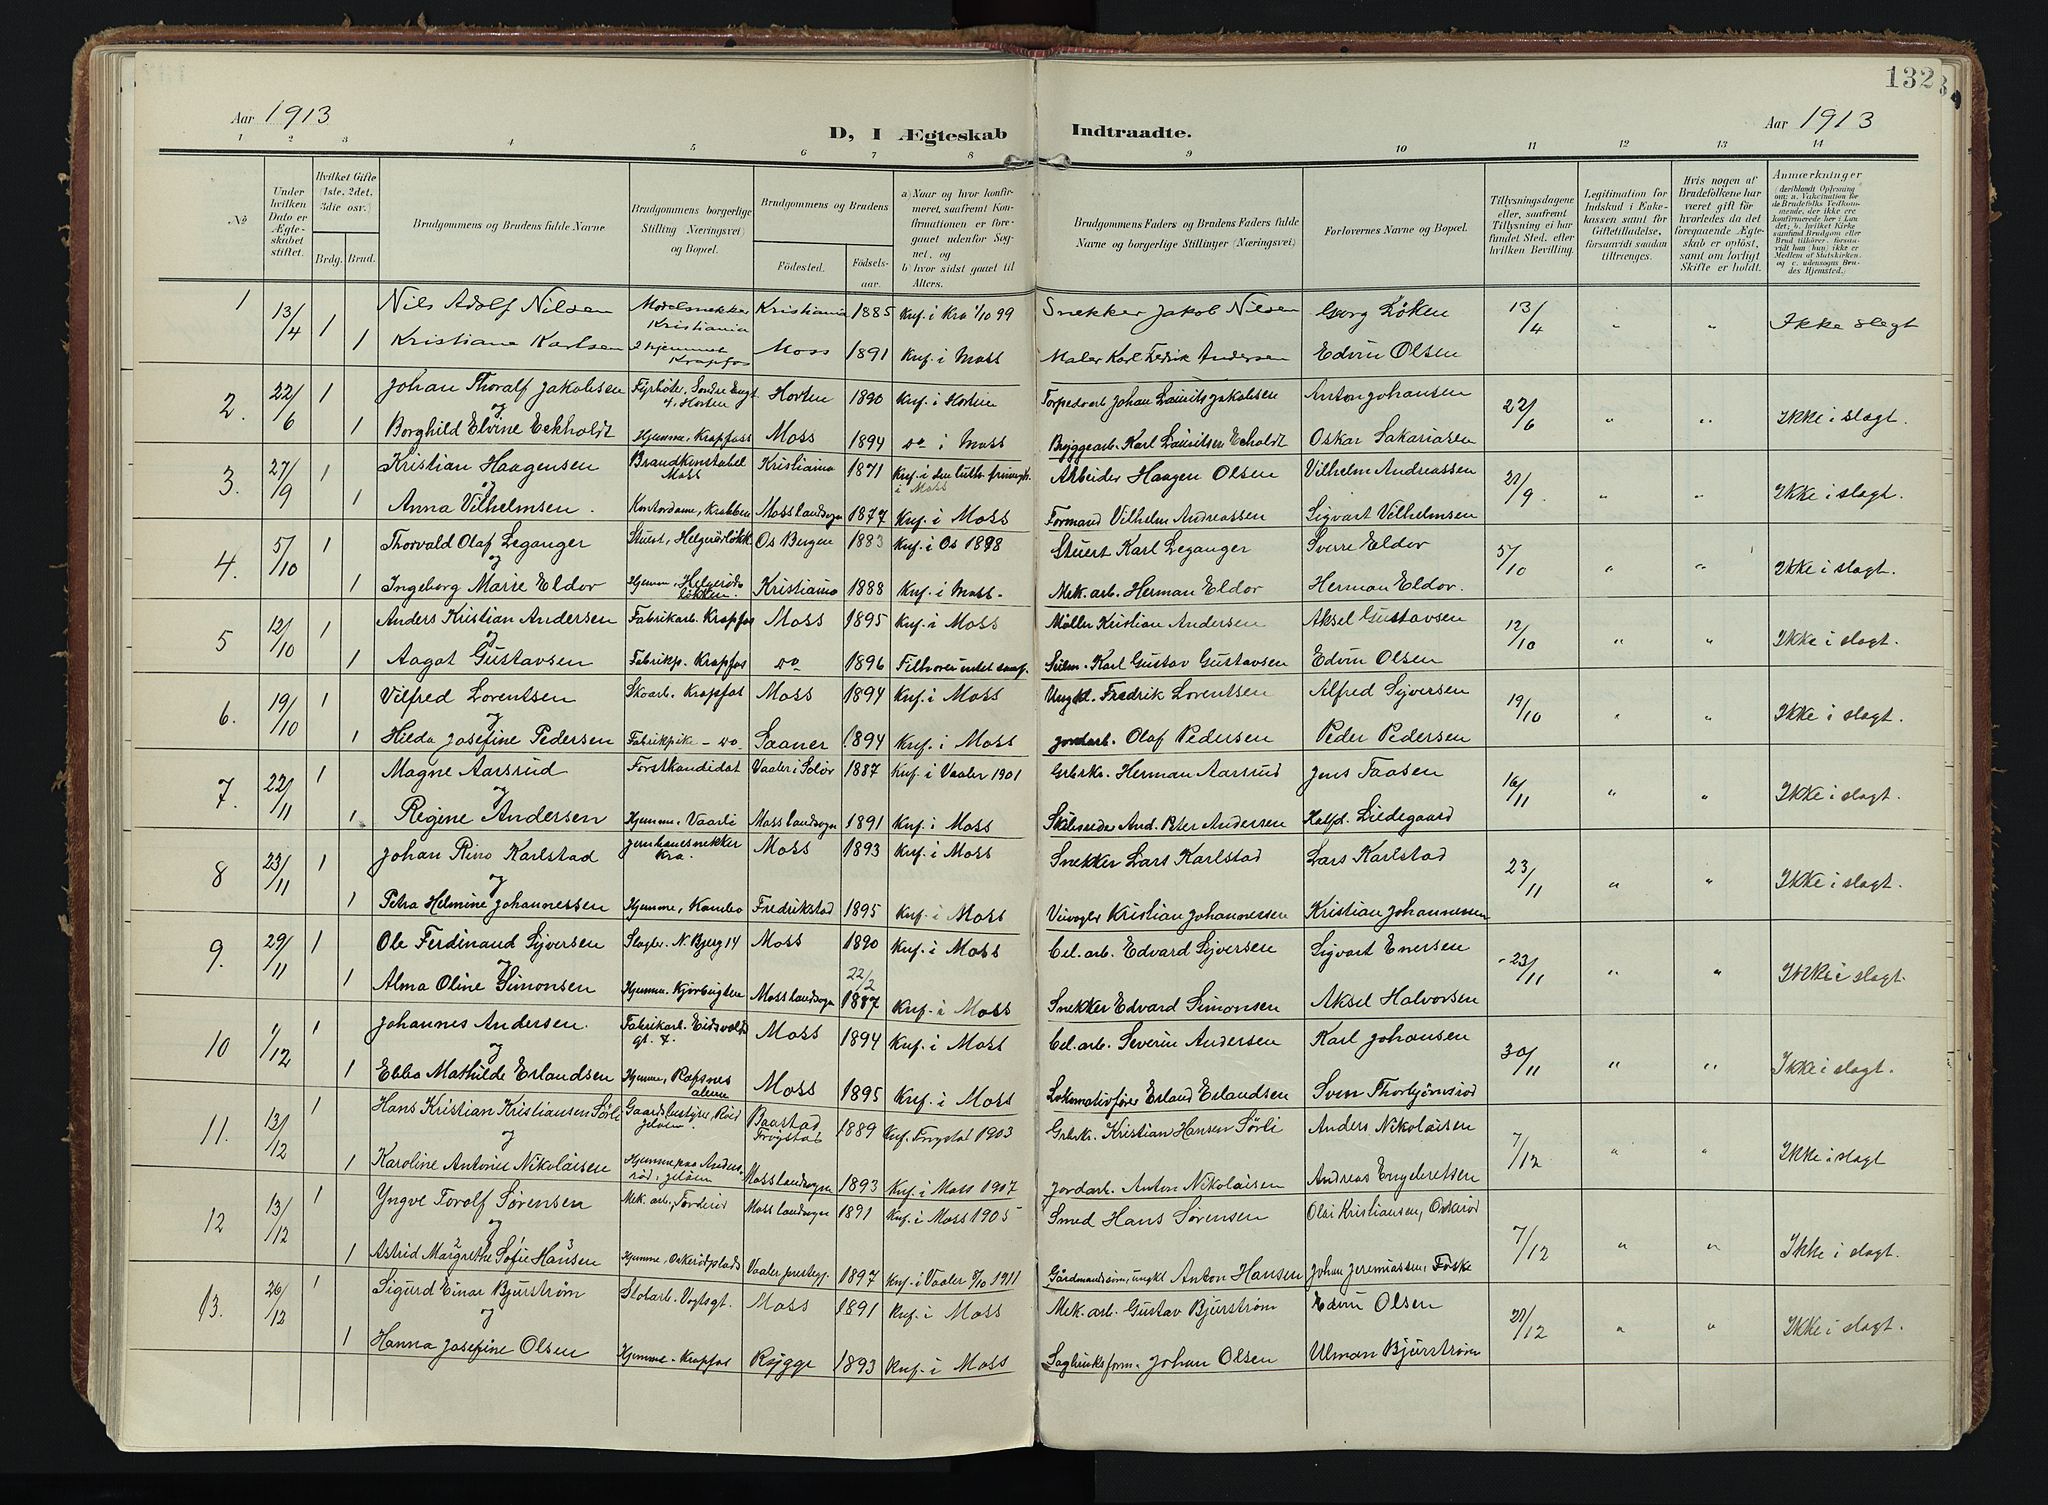 132
Aar 1913
D, I Ægteskab Indtraadte.
Aar 1913
1 2 3 4 5 6 7 8 9 10 11 12 13 14
No
Under hvilken Dato er Ægteskabet stiftet.
Hvilket Gifte (1ste. 2det. 3die osv.)
Brdg. Brud.
Brudgommens og Brudens fulde Navne
Brudgommens borgerlige Stilling (Næringsvei) og Bopæl.
Brudgommens og Brudens
Fødested. Fødselsaar.
a) Naar og hvor konfirmeret, saafremt Konfirmationen er foregaaet udenfor Sognet, og b) hvor sidst gaaet til Alters.
Brudgommens Faders og Brudens Faders fulde Navne og borgerlige Stillinger (Næringsvei)
Forlovernes Navne og Bopæl.
Tillysningsdagene eller, saafremt Tillysning ei har fundet Sted, efter hvilken Bevilling.
Legitimation for Indskud i Enkekassen samt for Giftetilladelse, forsaavidt saadan tiltrænges.
Hvis nogen af Brudefolkene har været gift før hvorledes da det foregaaende Ægteskab er opløst, samt om lovligt Skifte er holdt.
Anmærkninger
1 13/4 1 Nils Adolf Nilsen Modelsnekker Kristiania Kristiania 1885 Knf. i Kra 1/10 99 Snekker Jakob Nilsen Georg Løken 13/4 " " Ikke slegt
1 Kristiane Karlsen Hjemmet Krapfos Moss 1891 Knf. i Moss Maler Karl Fredrik Andersen Edvin Olsen
2. 22/6 1 Johan Thoralf Jakobsen Fyrbøter, Søndre Engt 4, Horten Horten 1890 Knf. i Horten Torpedoarb Johan Laurits Jakobsen Anton Johansen 22/6 " " Ikke i slagt.
og
1 Borghild Elvine Eckholdt Hjemme, Krapfoss Moss 1894 do i Moss Bryggearb. Karl Lauritsen Echoldt Oskar Sakariasen
3. 27/9 1 Kristian Haagensen Brandkonstabel Moss Kristiania 1871 Knf. i den luth. frimenigh. i Moss Arbeider Haagen Olsen Vilhelm Andreassen 21/9. " " Ikke i slagt.
og
1 Anna Vilhelmsen. Kontordame, Krabben Moss landsogn 1877 Knf. i Moss Formand Vilhelm Andreassen Sigvart Vilhelmsen
4. 5/10 1 Thorvald Olaf Leganger Stuert, Helgerødløkk Os Bergen 1883 Knf. i Os 1898 Stuert Karl Leganger Sverre Eldor 5/10 " " Ikke i slagt.
og
1 Ingeborg Marie Eldor Hjemme, Helgerødsløkken. Kristiania 1888 Knf. i Moss. Mek. arb. Herman Eldor Herman Eldor.
5 12/10 1 Anders Kristian Andersen Fabrikarb. Krapfos Moss 1895 Knf. i Moss Møller Kristian Andersen Aksel Gustavsen 12/10 " " Ikke i slagt.
og
1 Aagot Gustavsen Fabrikp. Krapfos do 1896 Tilhører intet samf. Karl Gustav Gustavsen Edvin Olsen
6. 19/10 1 Vilfred Lorentsen Skoarb. Krapfos Moss 1894 Knf. i Moss Ungkl. Fredrik Lorentsen Alfred Syversen 19/10 " " Ikke i slagt.
og
1 Hilda Josefine Pedersen Fabrikpike - do Saaner 1894 Knf. i Moss Jordarb. Olaf Pedersen Peder Pedersen
7. 22/11 1 Magne Aarsrud Forstkandidat Vaaler i Solør 1887 Knf. i Vaaler 1901 Grbrk. Herman Aarsrud Jens Taasen 16/11 " " Ikke i slagt.
og
1 Regine Andersen Hjemme, Vaarli Moss landsogn 1891 Knf. i Moss Skibsreder And. Peter Andersen Halfd. Lildegaard
8 23/11 1 Johan Rino Karlstad Jernbanesnekker Kra. Moss 1893 Knf. i Moss Snekker Lars Karlstad Lars Karlstad 23/11 " " Ikke i slagt.
og
1 Petra Helmine Johannessen Hjemme, Kambo Fredrikstad 1895 Knf. i Moss Kristian Johannessen Kristian Johannessen
9. 29/11 1 Ole Ferdinand Syversen Slagter. N. Bjerg 14 Moss 1890 Knf. i Moss Cel. arb. Edvard Syversen Sigvart Enersen 23/11 " " Ikke i slagt.
og
1 Alma Oline Simonsen Hjemme. Kjørbugten Moss landsogn 22/2 1887 Knf. i Moss Snekker Edvard Simonsen Aksel Halvorsen
10 1/12 1 Johannes Andersen. Fabrikarb. Eidsvolds gt. 7. Moss 1894 Knf. i Moss Cel. arb. Severin Andersen Karl Johansen 30/11 " " Ikke i slagt.
og
1 Ebba Mathilde Erlandsen Hjemme, Moss 1895 Knf. i Moss Lokomotivfører Erland Erlandsen Sven Thorbjørnsrød
11. 13/12 1 Hans Kristian Kristiansen Sørli Gaardsbestyrer, Røed Jeløen Baastad Trøgstad 1889 Knf. Trøgstad 1903 Grbrk. Kristian Hansen Sørli Anders Nikolaisen 7/12 " " Ikke i slagt
og
1 Karoline Antonie Nikolaisen Hjemme paa Andersrød, Jeløen Moss landsogn 1893 Knf. i Moss 1907 Jordarb. Anton Nikolaisen Andreas Engebretsen
12 13/12 1 Yngve Toralf Sørensen Mek. arb., Torderød Moss landsogn 1891 Knf. i Moss 1905 Smed Hans Sørensen Olai Kristiansen, Oskerød 7/12 " " Ikke i slagt.
og
1 Astrid Margrethe Sofie Hansen Hjemme, Oskerødplads Vaaler prestegj. 1897 Knf. i Vaaler 8/10 1911 Gårdmandssøn, ungkl Anton Hansen Johan Jeremiassen, Foske
13. 26/12 1 Sigurd Einar Bjurstrøm Slotarb. Vogtsgt. Moss 1891 Knf. i Moss Mek. arb. Gustav Bjurstrøm Edvin Olsen 21/12 " " Ikke i slagt.
og
1 Hanna Josefine Olsen Hjemme. Krapfos Rygge 1893 Knf. i Moss Sagbruksform. Johan Olsen Ulman Bjurstrøm